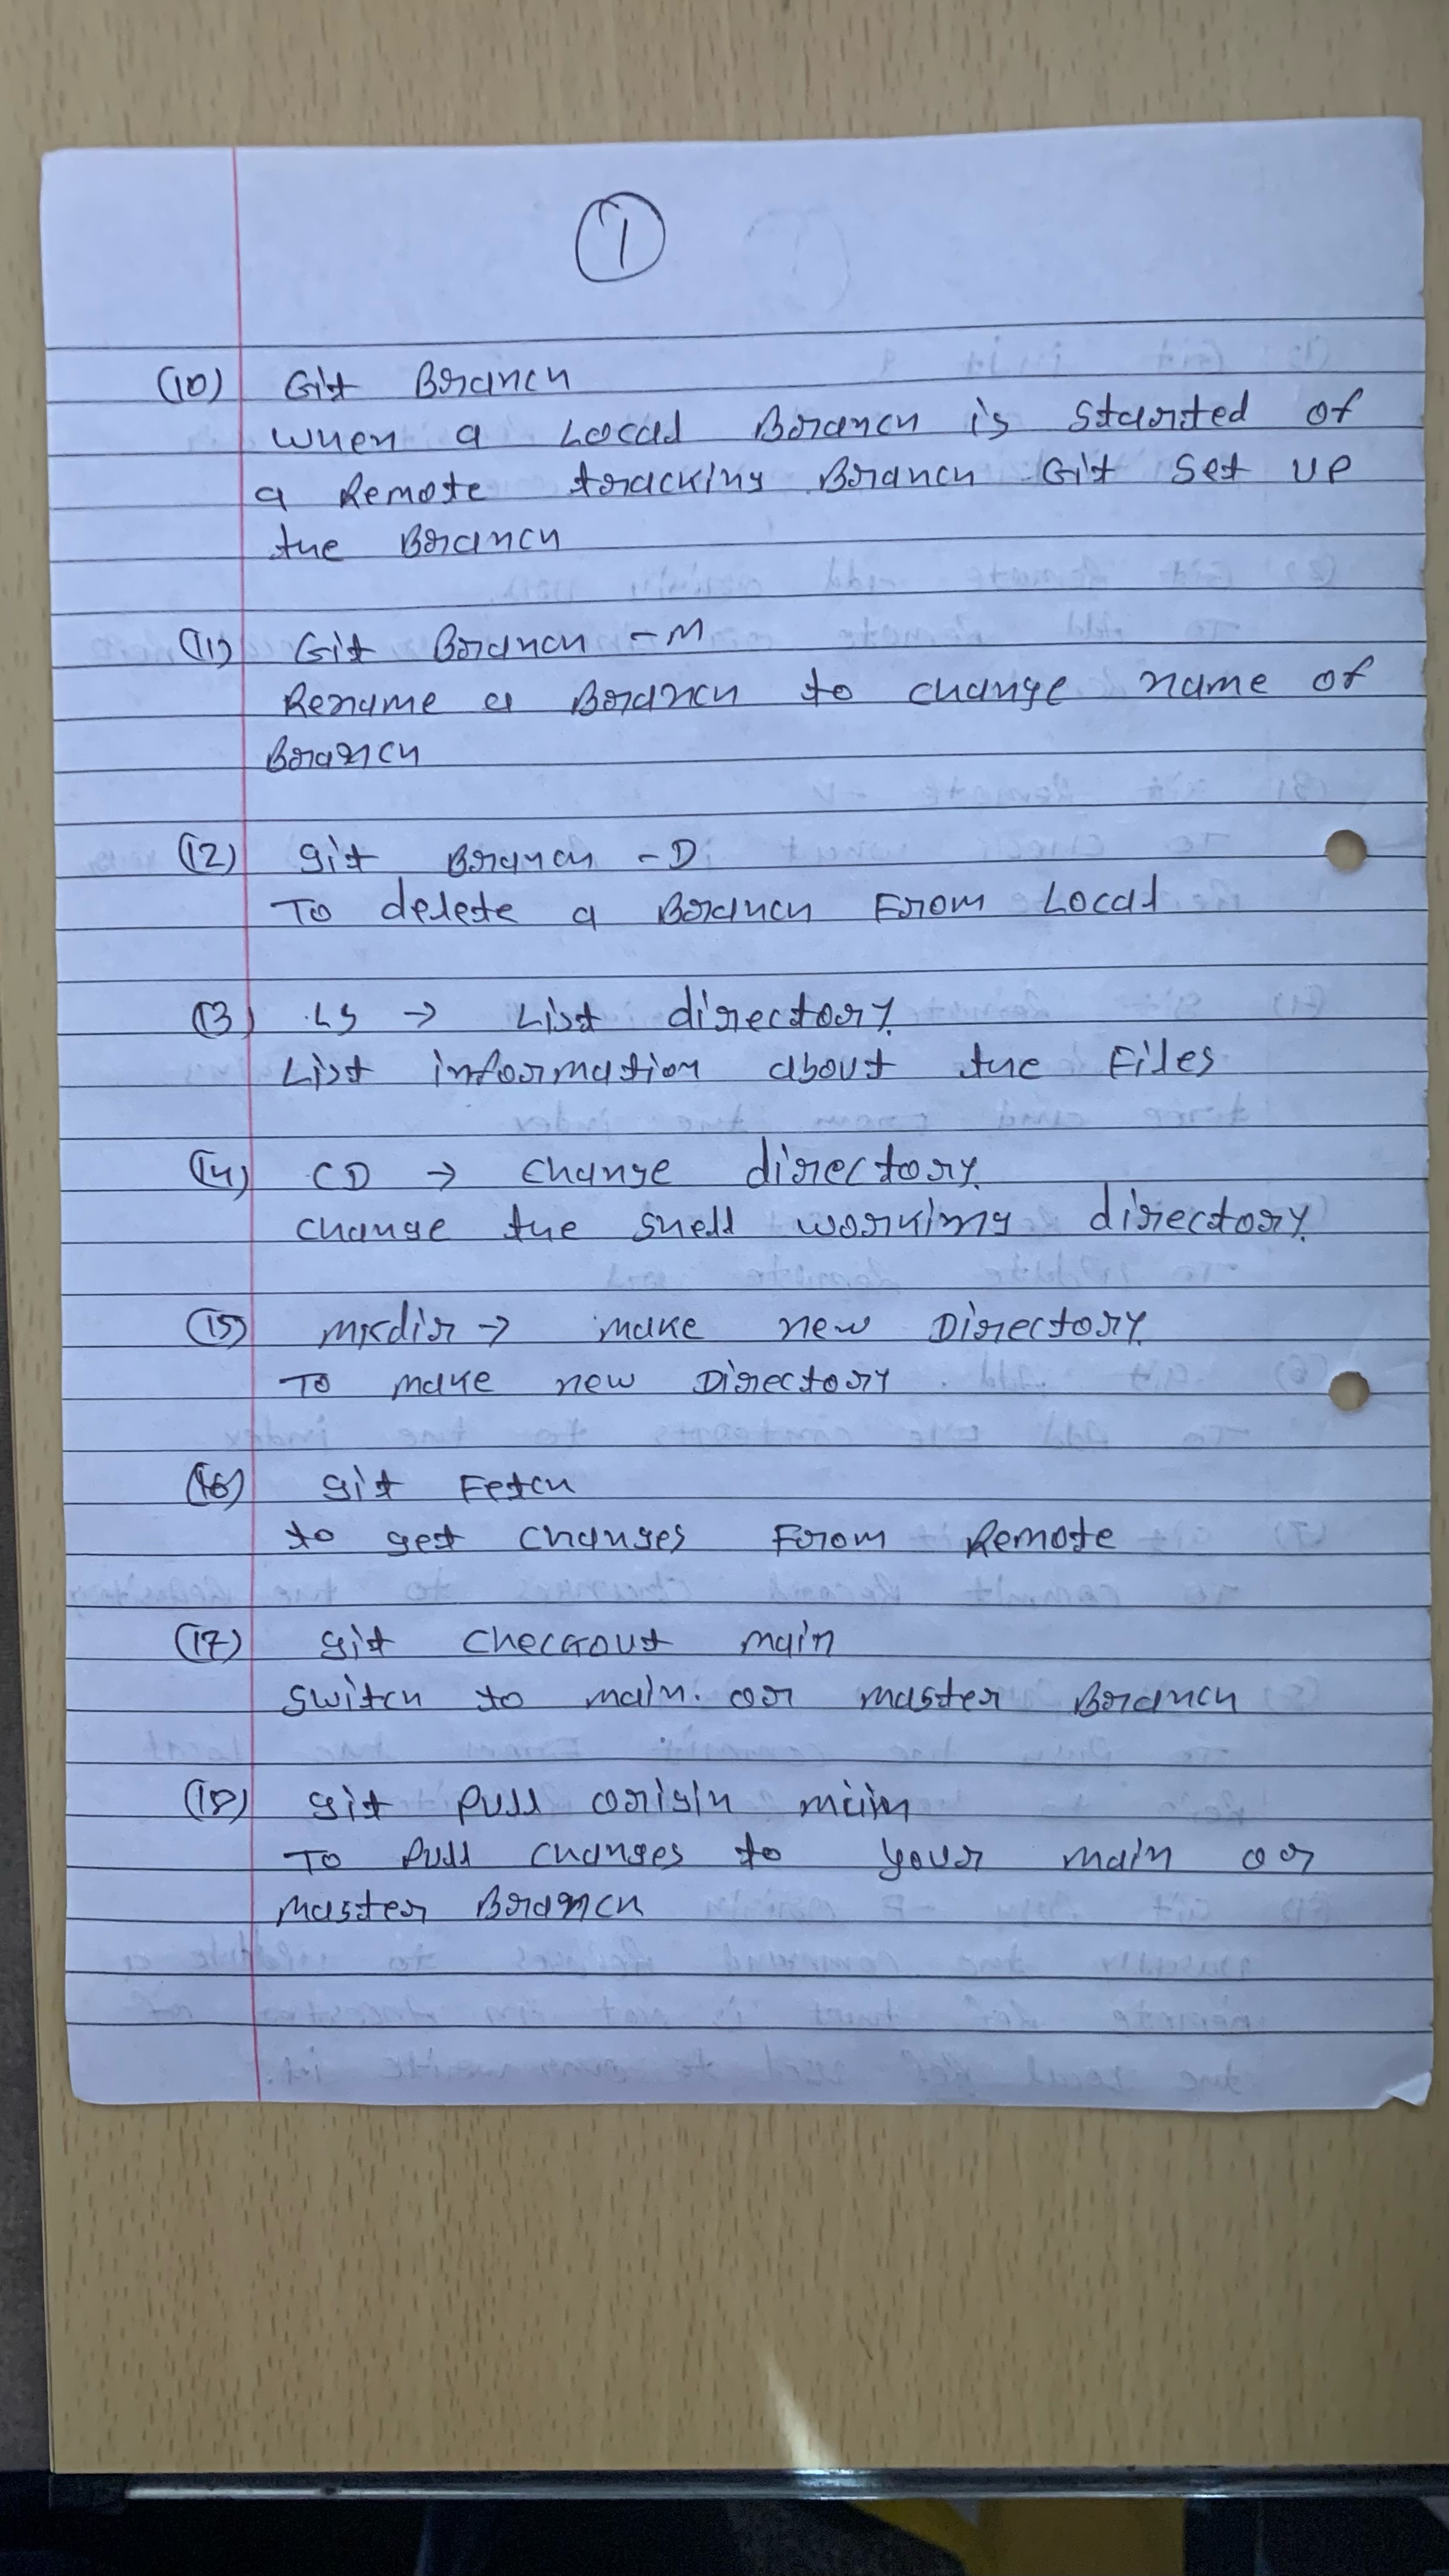 1
(10) Git Branch
when a Local Branch is started of
a Remote tracking Branch Git set up
the Branch
(11) Git Branch -M
Rename a Branch to change name of
Branch
(12) git Branch -D
To delete a Branch From Local
(13) LS → List directory.
List information about the Files
(14) CD → change directory.
change the shell working directory.
(15) mkdir → make new Directory.
To make new Directory
(16) git Fetch
to get changes From Remote
(17) git checkout main
switch to main. or master Branch
(18) git pull origin main
To Pull changes to your main or
master Branch